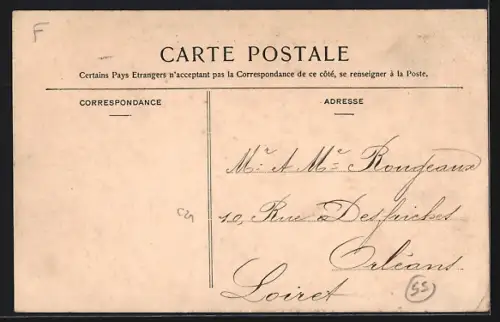 F
CARTE POSTALE
Certains Pays Etrangers n'acceptant pas la Correspondance de ce côté, se renseigner à la Poste.
CORRESPONDANCE
ADRESSE
Mr A Me Rougeaux
10, Rue Desfriches
Orléans
Loiret
SS